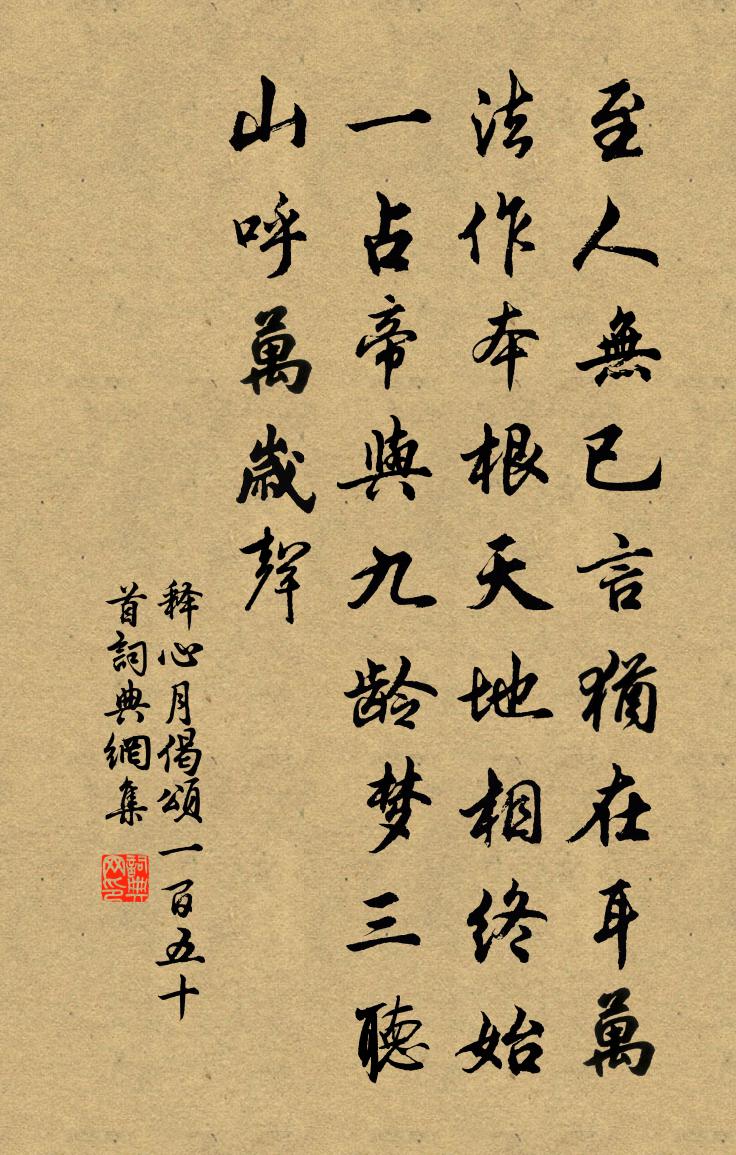 至人無已言猶在耳萬
法作本根天地相終始
一占帝與九龄梦三聽
山呼萬歲聲
释心月偈頌一百五十
首詞典網集
詞典网印